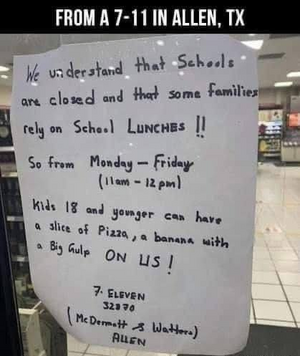 FROM A 7-11 IN ALLEN, TX
We understand that Schools
are closed and that some families
rely on School LUNCHES !!
So from Monday – Friday
(11am – 12pm)
Kids 18 and younger can have
a slice of Pizza, a banana with
a Big Gulp ON US!
7. ELEVEN
32870
(McDermott & Watters)
ALLEN